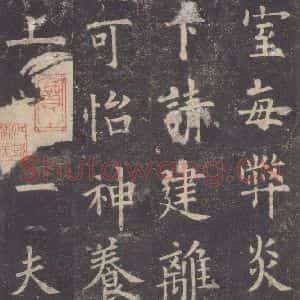 室每弊炎
下請建離
可怡神養
上一夫
Shufawang.cn